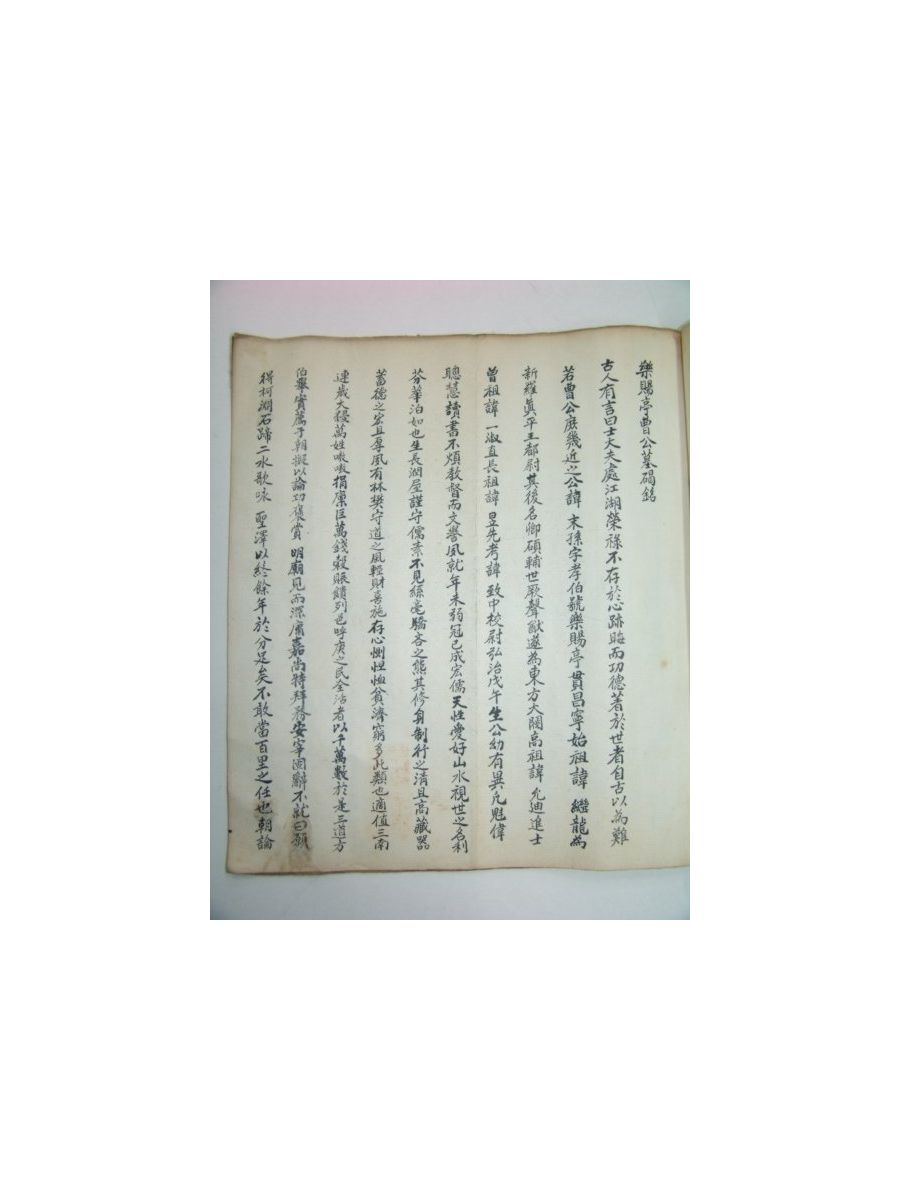 樂賜亭曹公墓碣銘
古人有言曰士大夫處江湖榮祿不存於心跡晦而功德著於世者自古以為難
若曹公庶幾近之公諱 末孫字孝伯號樂賜亭貫昌寧始祖諱 繼龍為
新羅眞平王都尉其後名卿碩輔世厥聲猷遂為東方大閥高祖諱 允迪進士
曾祖諱 一淑直長祖諱 昱先考諱 致中校尉弘治戊午生公幼有異凡魁偉
聰慧讀書不煩敎督而文譽夙就年未弱冠已成宏儒天性愛好山水視世之名利
芬華泊如也生長潤屋謹守儒素不見絲毫驕吝之態其修身制行之清且高藏器
蓄德之宏且厚夙有林樊守道之風輕財喜施存心惻怛恤貧濟窮多此類也適值三南
連歲大祲萬姓嗷嗷捐廩巨萬錢穀賑饋列邑呼庚之民全活者以千萬數於是三道方
伯擧實薦于朝擬以論功褒賞 明廟見而深庸嘉尚特拜 安宰固辭不就曰願
得柯澗石蹄二水歌咏 聖澤以終餘年於分足矣不敢當百里之任也朝論